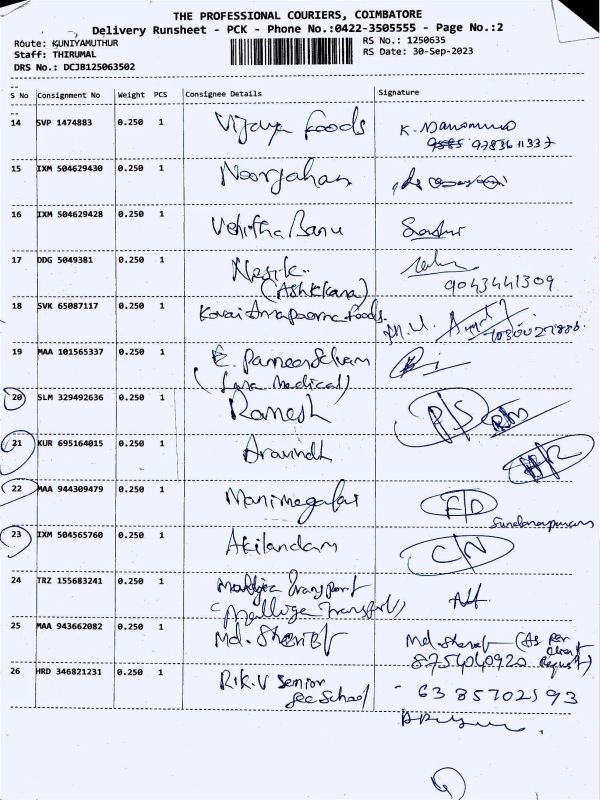 THE PROFESSIONAL COURIERS, COIMBATORE
Delivery Runsheet - PCK - Phone No.:0422-3505555 - Page No.:2
Route: KUNIYAMUTHUR
RS No.: 1250635
Staff: THIRUMAL
RS Date: 30-Sep-2023
DRS No.: DCJB125063502
S No Consignment No Weight PCS Consignee Details Signature
14 SVP 1474883 0.250 1 Vijaya Foods
9783611337
15 IXM 504629430 0.250 1 Noorjahan
16 IXM 504629428 0.250 1 Banu
17 DDG 5049381 0.250 1 Nasik
(Ashkkara) 9043441309
18 SVK 65087117 0.250 1 Kovai Annapoorna Foods.
19 MAA 101565337 0.250 1 E.
(Lara Medical)
20 SLM 329492636 0.250 1 Ramesh P/S
21 KUR 695164015 0.250 1 Aravindh
22 MAA 944309479 0.250 1 Manimegalai F/D
Sundarapuram
23 IXM 504565760 0.250 1 Akilandam C/N
24 TRZ 155683241 0.250 1 Transport
(Malliga Transport)
25 MAA 943662082 0.250 1 Md. Sherief Md. Sherief (As per
8754040920 Request)
26 HRD 346821231 0.250 1 R.K.V Senior 6385702193
Sec School